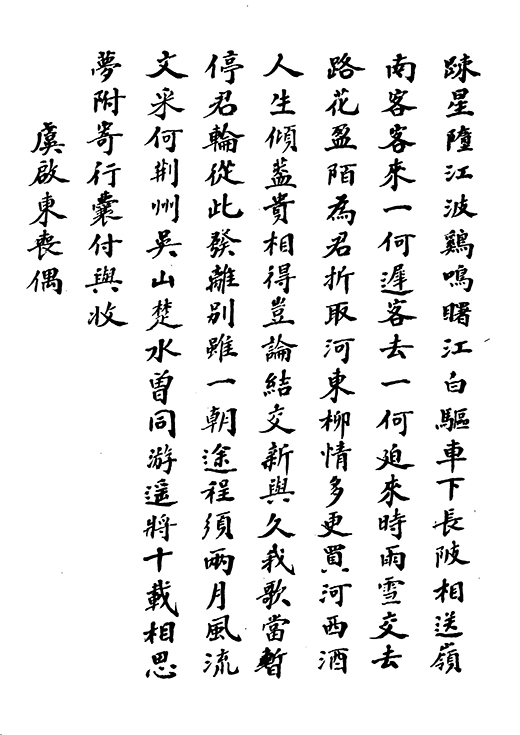 踈星墮江波鷄鳴曙江白驅車下長陂相送嶺
南客客來一何遲客去一何迫來時雨雪交去
路花盈陌為君折取河東柳情多更買河西酒
人生傾蓋貴相得豈論結交新與久我歌當暫
停君輪從此發離別雖一朝途程須兩月風流
文采何荆州吳山楚水曽同游遥將十載相思
夢附寄行囊付與收
虞啟東喪偶